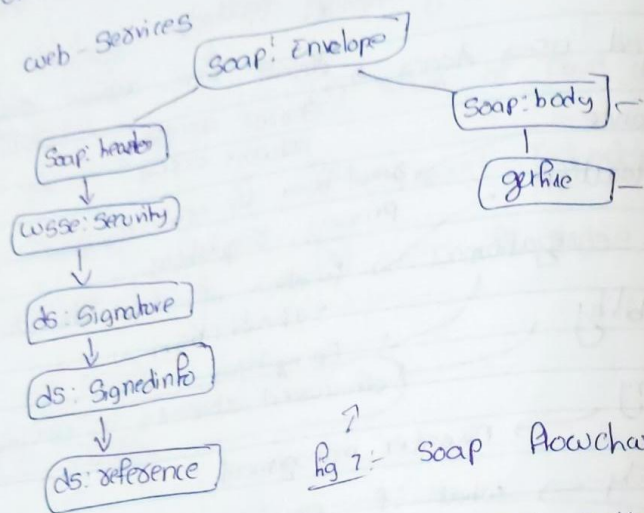 web-services
Soap: Envelope
Soap: body
Soap: header
getfile
wsse: security
ds: Signature
ds: Signedinfo
ds: reference
fig 7:- Soap flowcha